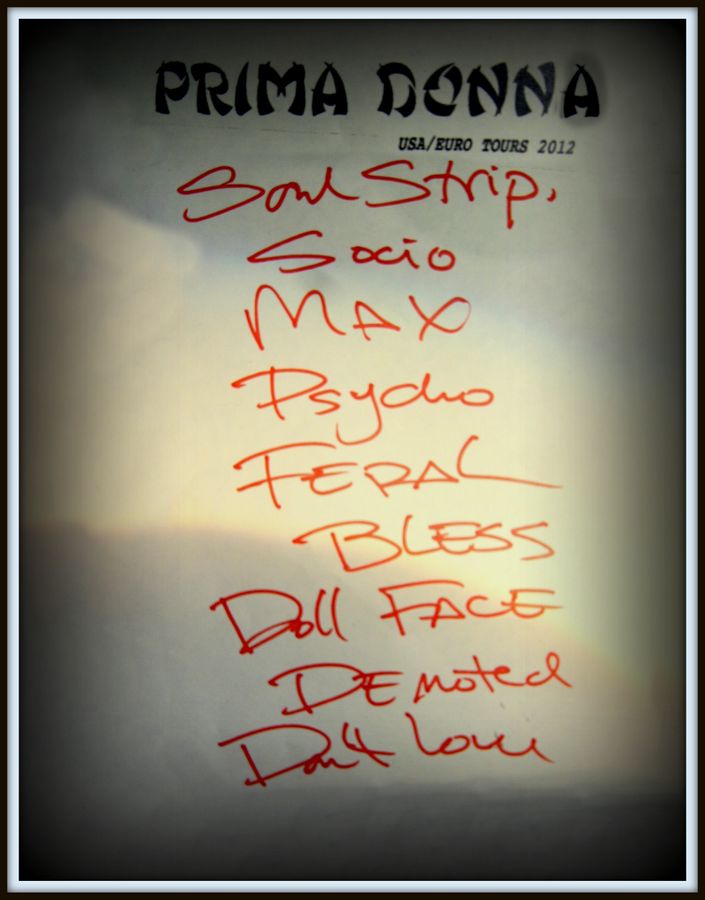 PRIMA DONNA
USA/EURO TOURS 2012
Soul Strip.
Socio
MAX
Psycho
FERAL
BLESS
Doll FACE
DEmoted
Don't Love